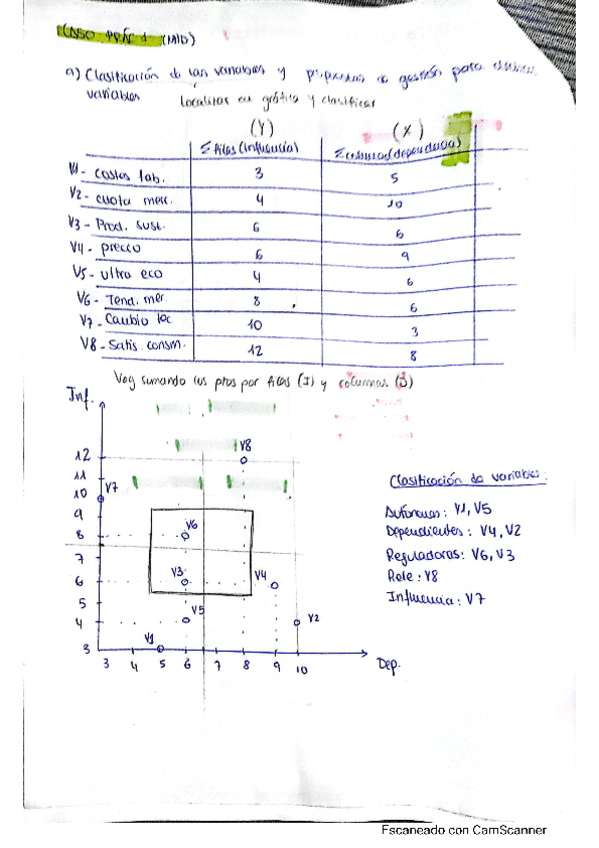 CASO PRÁC 1 (MID)
a) Clasificación de las variables y propuestas de gestión para dichas
variables
localizar en gráfico y clasificar
(Y) (X)
Σ filas (influencia) Σ columnas (dependencia)
V1 - costos lab. 3 5
V2 - cuota merc. 4 10
V3 - Prod. sust. 6 6
V4 - precio 6 9
V5 - ultra eco 4 6
V6 - Tend. mer. 8 6
V7 - Cambio loc 10 3
V8 - Satis. consm. 12 8
Voy sumando los ptos por filas (I) y columnas (D)
Inf.
12 V8
11
10 V7
9
8 V6
7
6 V3 V4
5 V5
4 V2
3 V1
3 4 5 6 7 8 9 10 Dep.
Clasificación de variables:
Autónomas: V1, V5
Dependientes: V4, V2
Reguladoras: V6, V3
Role: V8
Influencia: V7
Escaneado con CamScanner